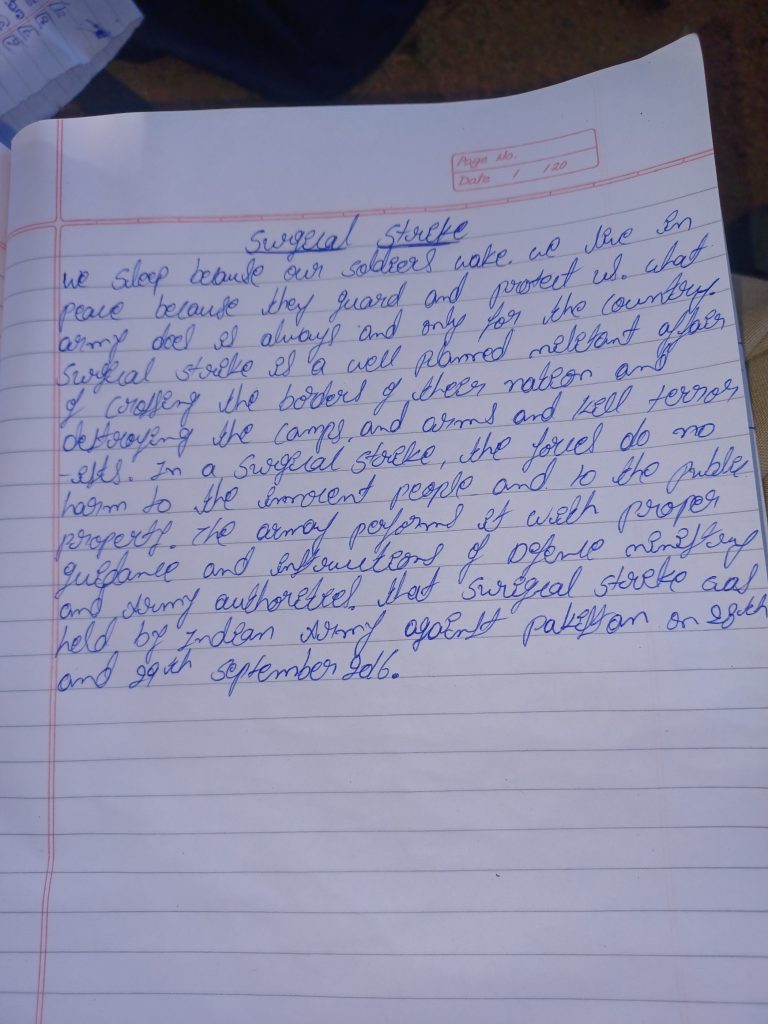 Page No.
Date / /20
Surgical Strike
we sleep because our soldiers wake. we live in
peace because they guard and protect us. what
army does is always and only for the country.
Surgical strike is a well planned militant affair
of crossing the borders of their nation and
destroying the camps, and arms and kill terror
-ists. In a surgical strike, the forces do no
harm to the innocent people and to the public
property. The army performs it with proper
guidance and instructions of Defence ministry
and Army authorities. that surigical strike was
held by Indian Army against pakistan on 28th
and 29th september 2016.